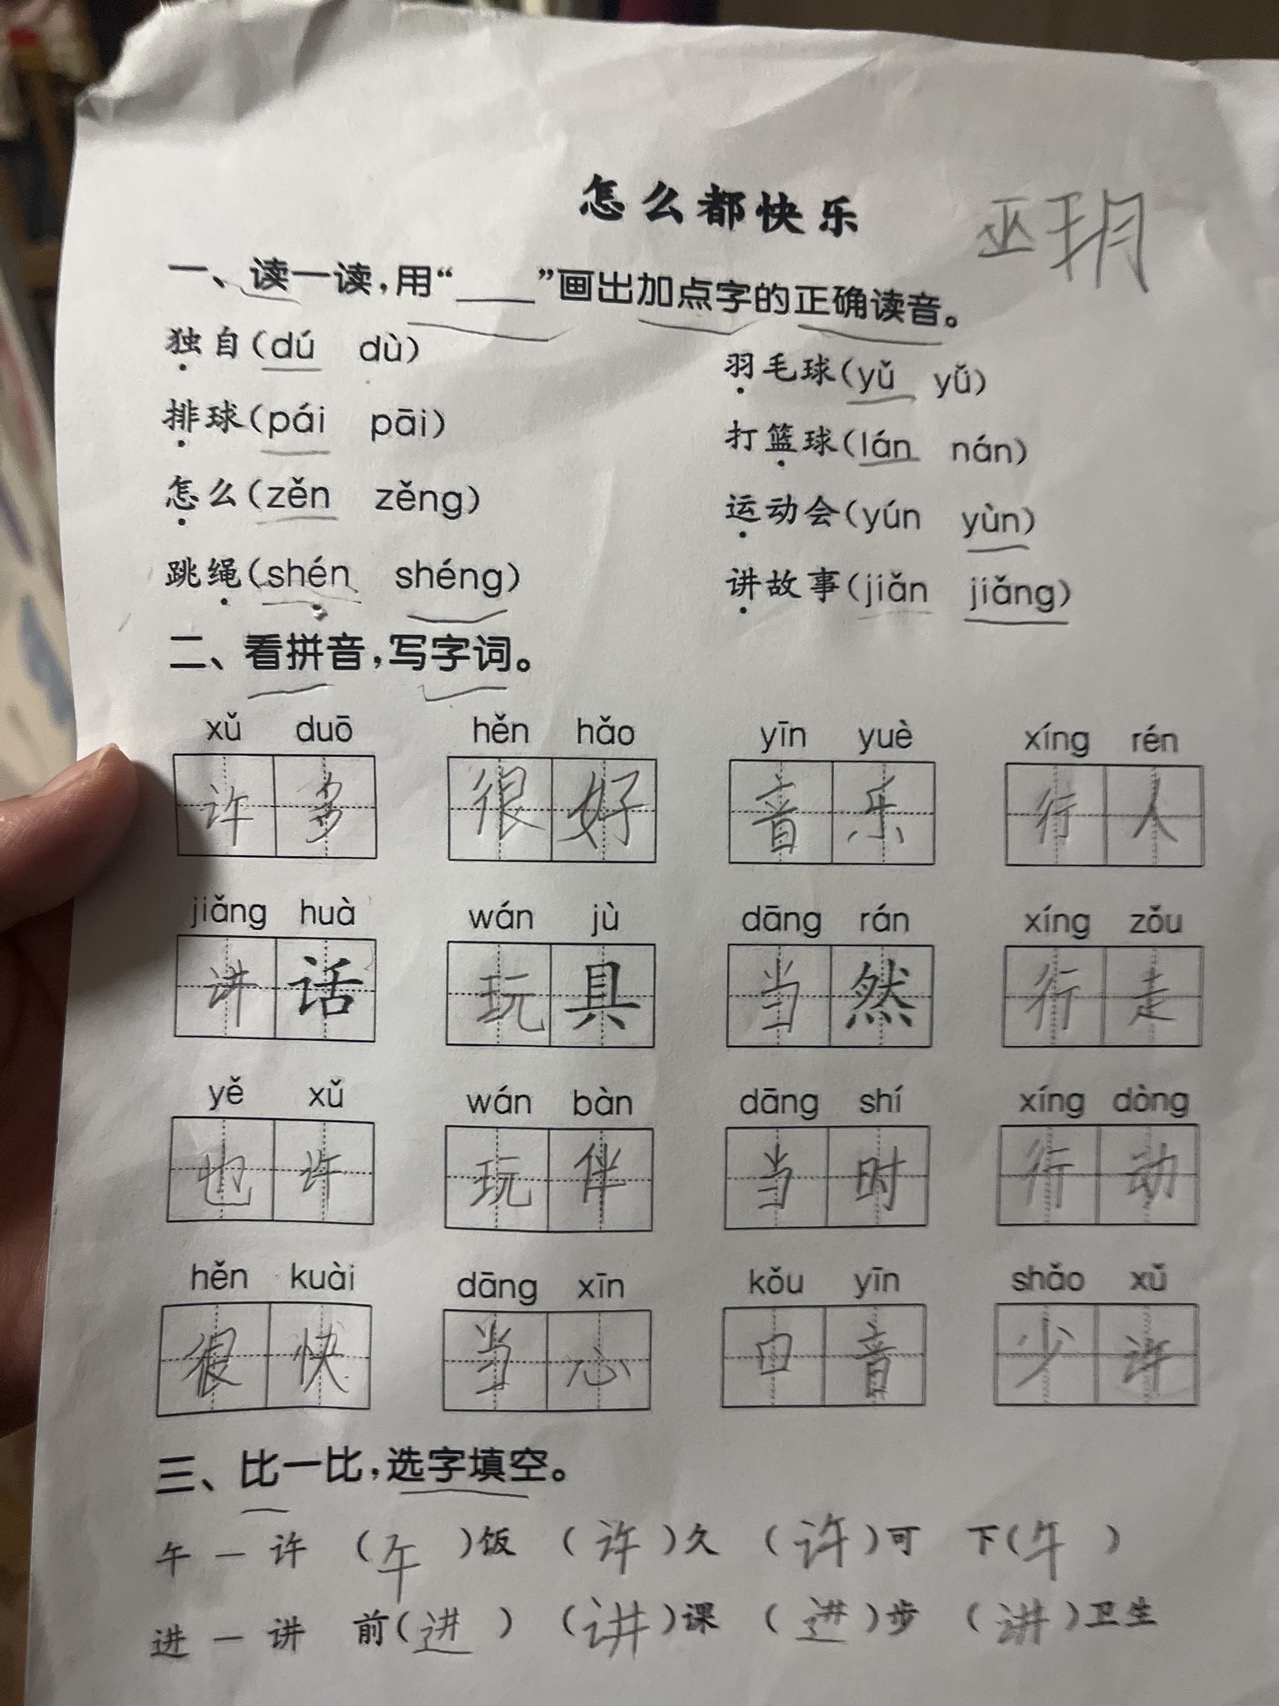 怎么都快乐
巫玥
一、读一读,用“____”画出加点字的正确读音。
独自(dú dù) 羽毛球(yǔ yǔ)
排球(pái pāi) 打篮球(lán nán)
怎么(zěn zěng) 运动会(yún yùn)
跳绳(shén shéng) 讲故事(jiǎn jiǎng)
二、看拼音,写字词。
xǔ duō hěn hǎo yīn yuè xíng rén
许多 很好 音乐 行人
jiǎng huà wán jù dāng rán xíng zǒu
讲话 玩具 当然 行走
yě xǔ wán bàn dāng shí xíng dòng
也许 玩伴 当时 行动
hěn kuài dāng xīn kǒu yīn shǎo xǔ
很快 当心 口音 少许
三、比一比,选字填空。
午 — 许 (午)饭 (许)久 (许)可 下(午)
进 — 讲 前(进) (讲)课 (进)步 (讲)卫生